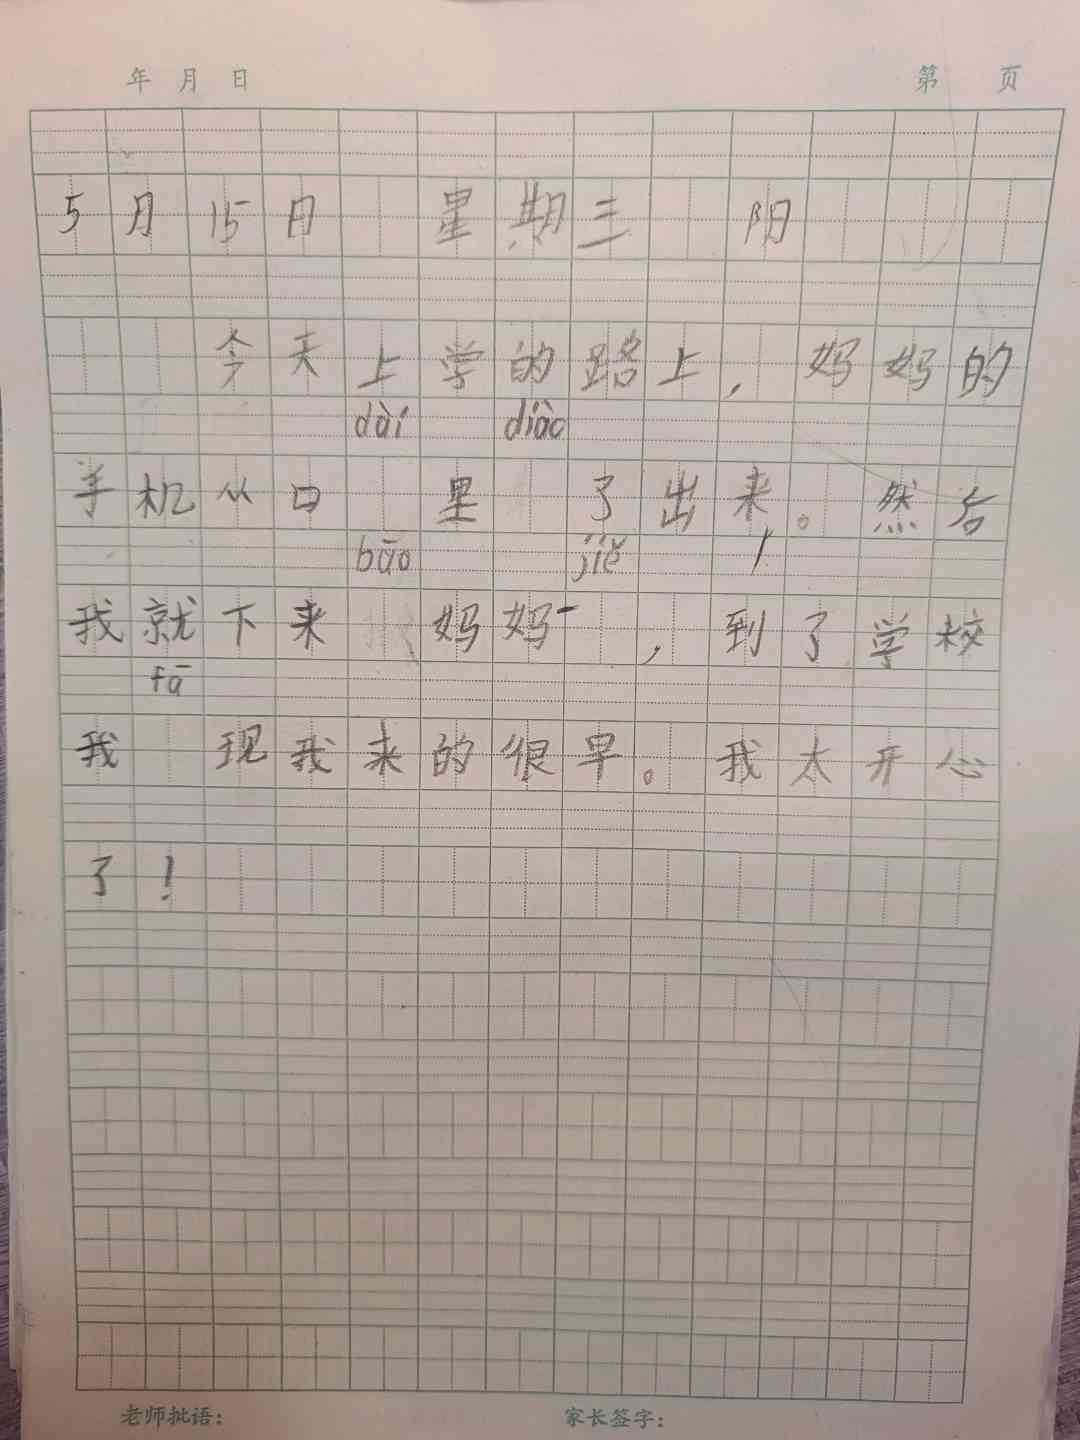 年 月 日 第 页
5月15日 星期三 阳
今天上学的路上，妈妈的
dài diào
手机从口 里 了出来。然后
bāo jiě
我就下来 妈妈 ，到了学校
fā
我 现我来的很早。我太开心
了！
老师批语： 家长签字：